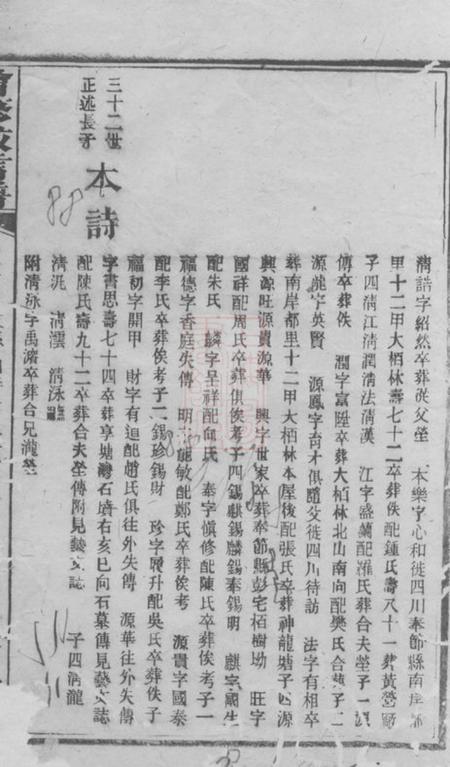 清誥字紹然卒葬從父塋 本樂字心和徙四川奉節縣南岸都
里十二甲大栢林壽七十二卒葬佚配鍾氏壽八十一葬黃營
子四清江清潤清法清漢 江字盛蘭配羅氏葬合夫塋子一源
傅卒葬佚 潤字富陞卒葬大栢林北山南向配樊氏合葬子二
源龍字英賢 源鳳字奇才俱隨父徙四川待訪 法字有相卒
葬南岸都里十二甲大栢林本屋後配張氏卒葬神龍塘子四源
興源旺源貴源華 興字世家卒葬奉節縣彭宅栢樹坳 旺字
國祥配周氏卒葬俱俟考子四錫麒錫麟錫奉錫明 麒字國生
配朱氏 麟字呈祥配向氏 奉字愼修配陳氏卒葬俟考子一
福德字香庭失傳 明字能敏配鄭氏卒葬俟考 源貴字國泰
配李氏卒葬俟考子二錫珍錫財 珍字履升配吳氏卒葬佚子
福初字開甲 財字有迫配趙氏俱往外失傳 源華往外失傳
三十二世
正述長子
本詩
字書思壽七十四卒葬享塘灣石塝右亥巳向石墓傳見藝文誌
配陳氏壽九十二卒葬合夫塋傳附見藝文誌 子四清瀧
清泥 清澐 清泳
附清泳字禹濱卒葬合兄瀧塋
88